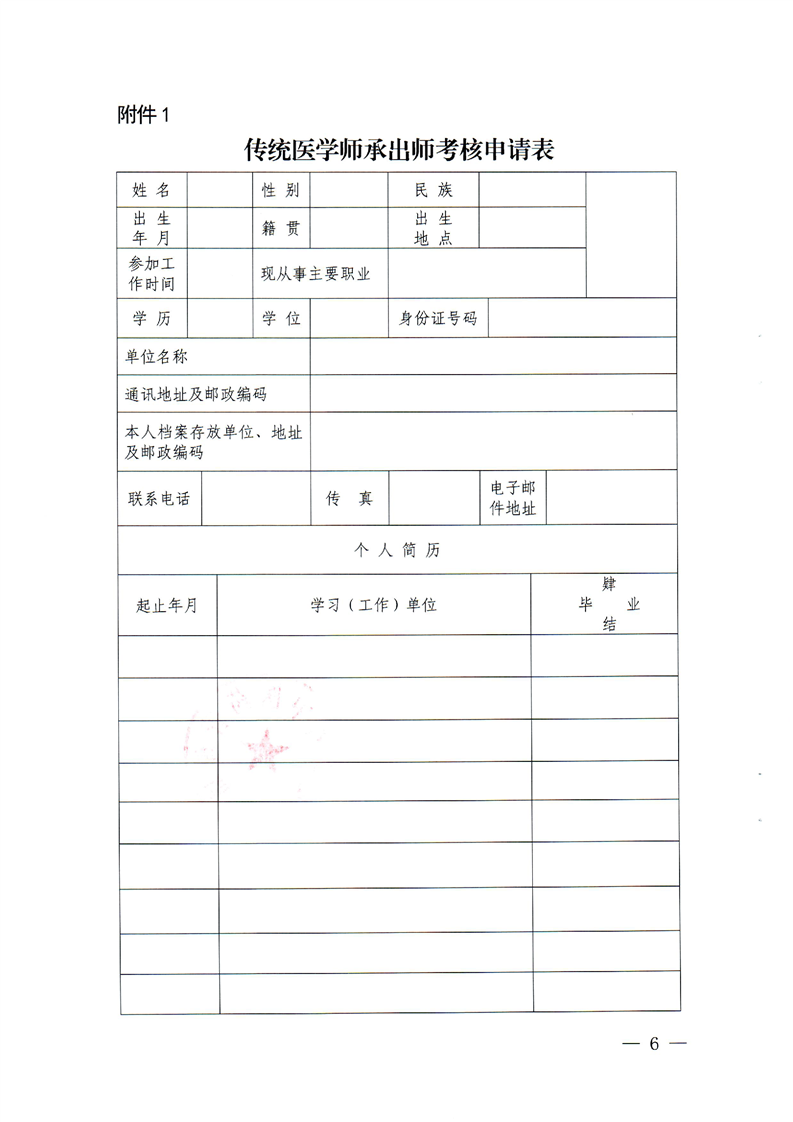 附件1
传统医学师承出师考核申请表
姓 名 性 别 民 族
出 生
年 月
籍 贯
出 生
地 点
参加工
作时间
现从事主要职业
学 历 学 位 身份证号码
单位名称
通讯地址及邮政编码
本人档案存放单位、地址
及邮政编码
联系电话 传 真
电子邮
件地址
个 人 简 历
起止年月 学习（工作）单位
肄
毕 业
结
— 6 —